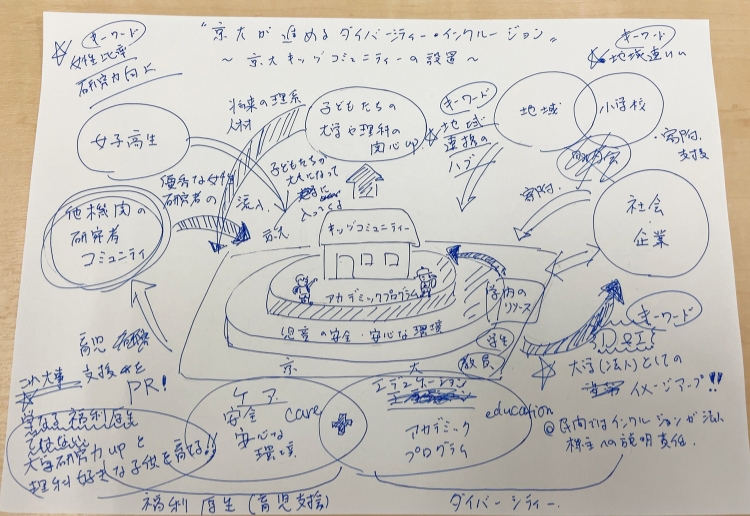 "京大が進めるダイバーシティー・インクルージョン"
～京大キッヅコミュニティーの設置～
キーワード
女性比率
研究力向上
キーワード
地域連携
将来の理系
人材
子どもたちの
大学や理科の
関心up
キーワード
地域
連携の
ハブ
地域
小学校
・寄附
支援
女子高生
優秀な女性
研究者の
流入
子どもたちが
大人になって
入ってくる
寄附
他機関の
研究者
コミュニティ
キッヅコミュニティー
社会
・
企業
アカデミックプログラム
学内の
リソース
児童の安全・安心な環境
学生
教員
キーワード
D&I
大学(法人)としての
イメージアップ!!
育児
支援
PR!
京 大
これ大事
単なる福利厚生
ではない
大学研究力upと
理科好きな子供を育てる!!
ケア
安全
安心な
環境
care
エデュケーション
アカデミック
プログラム
education
@民間ではインクルージョンが
株主への説明責任.
福利厚生(育児支援)
ダイバーシティー.